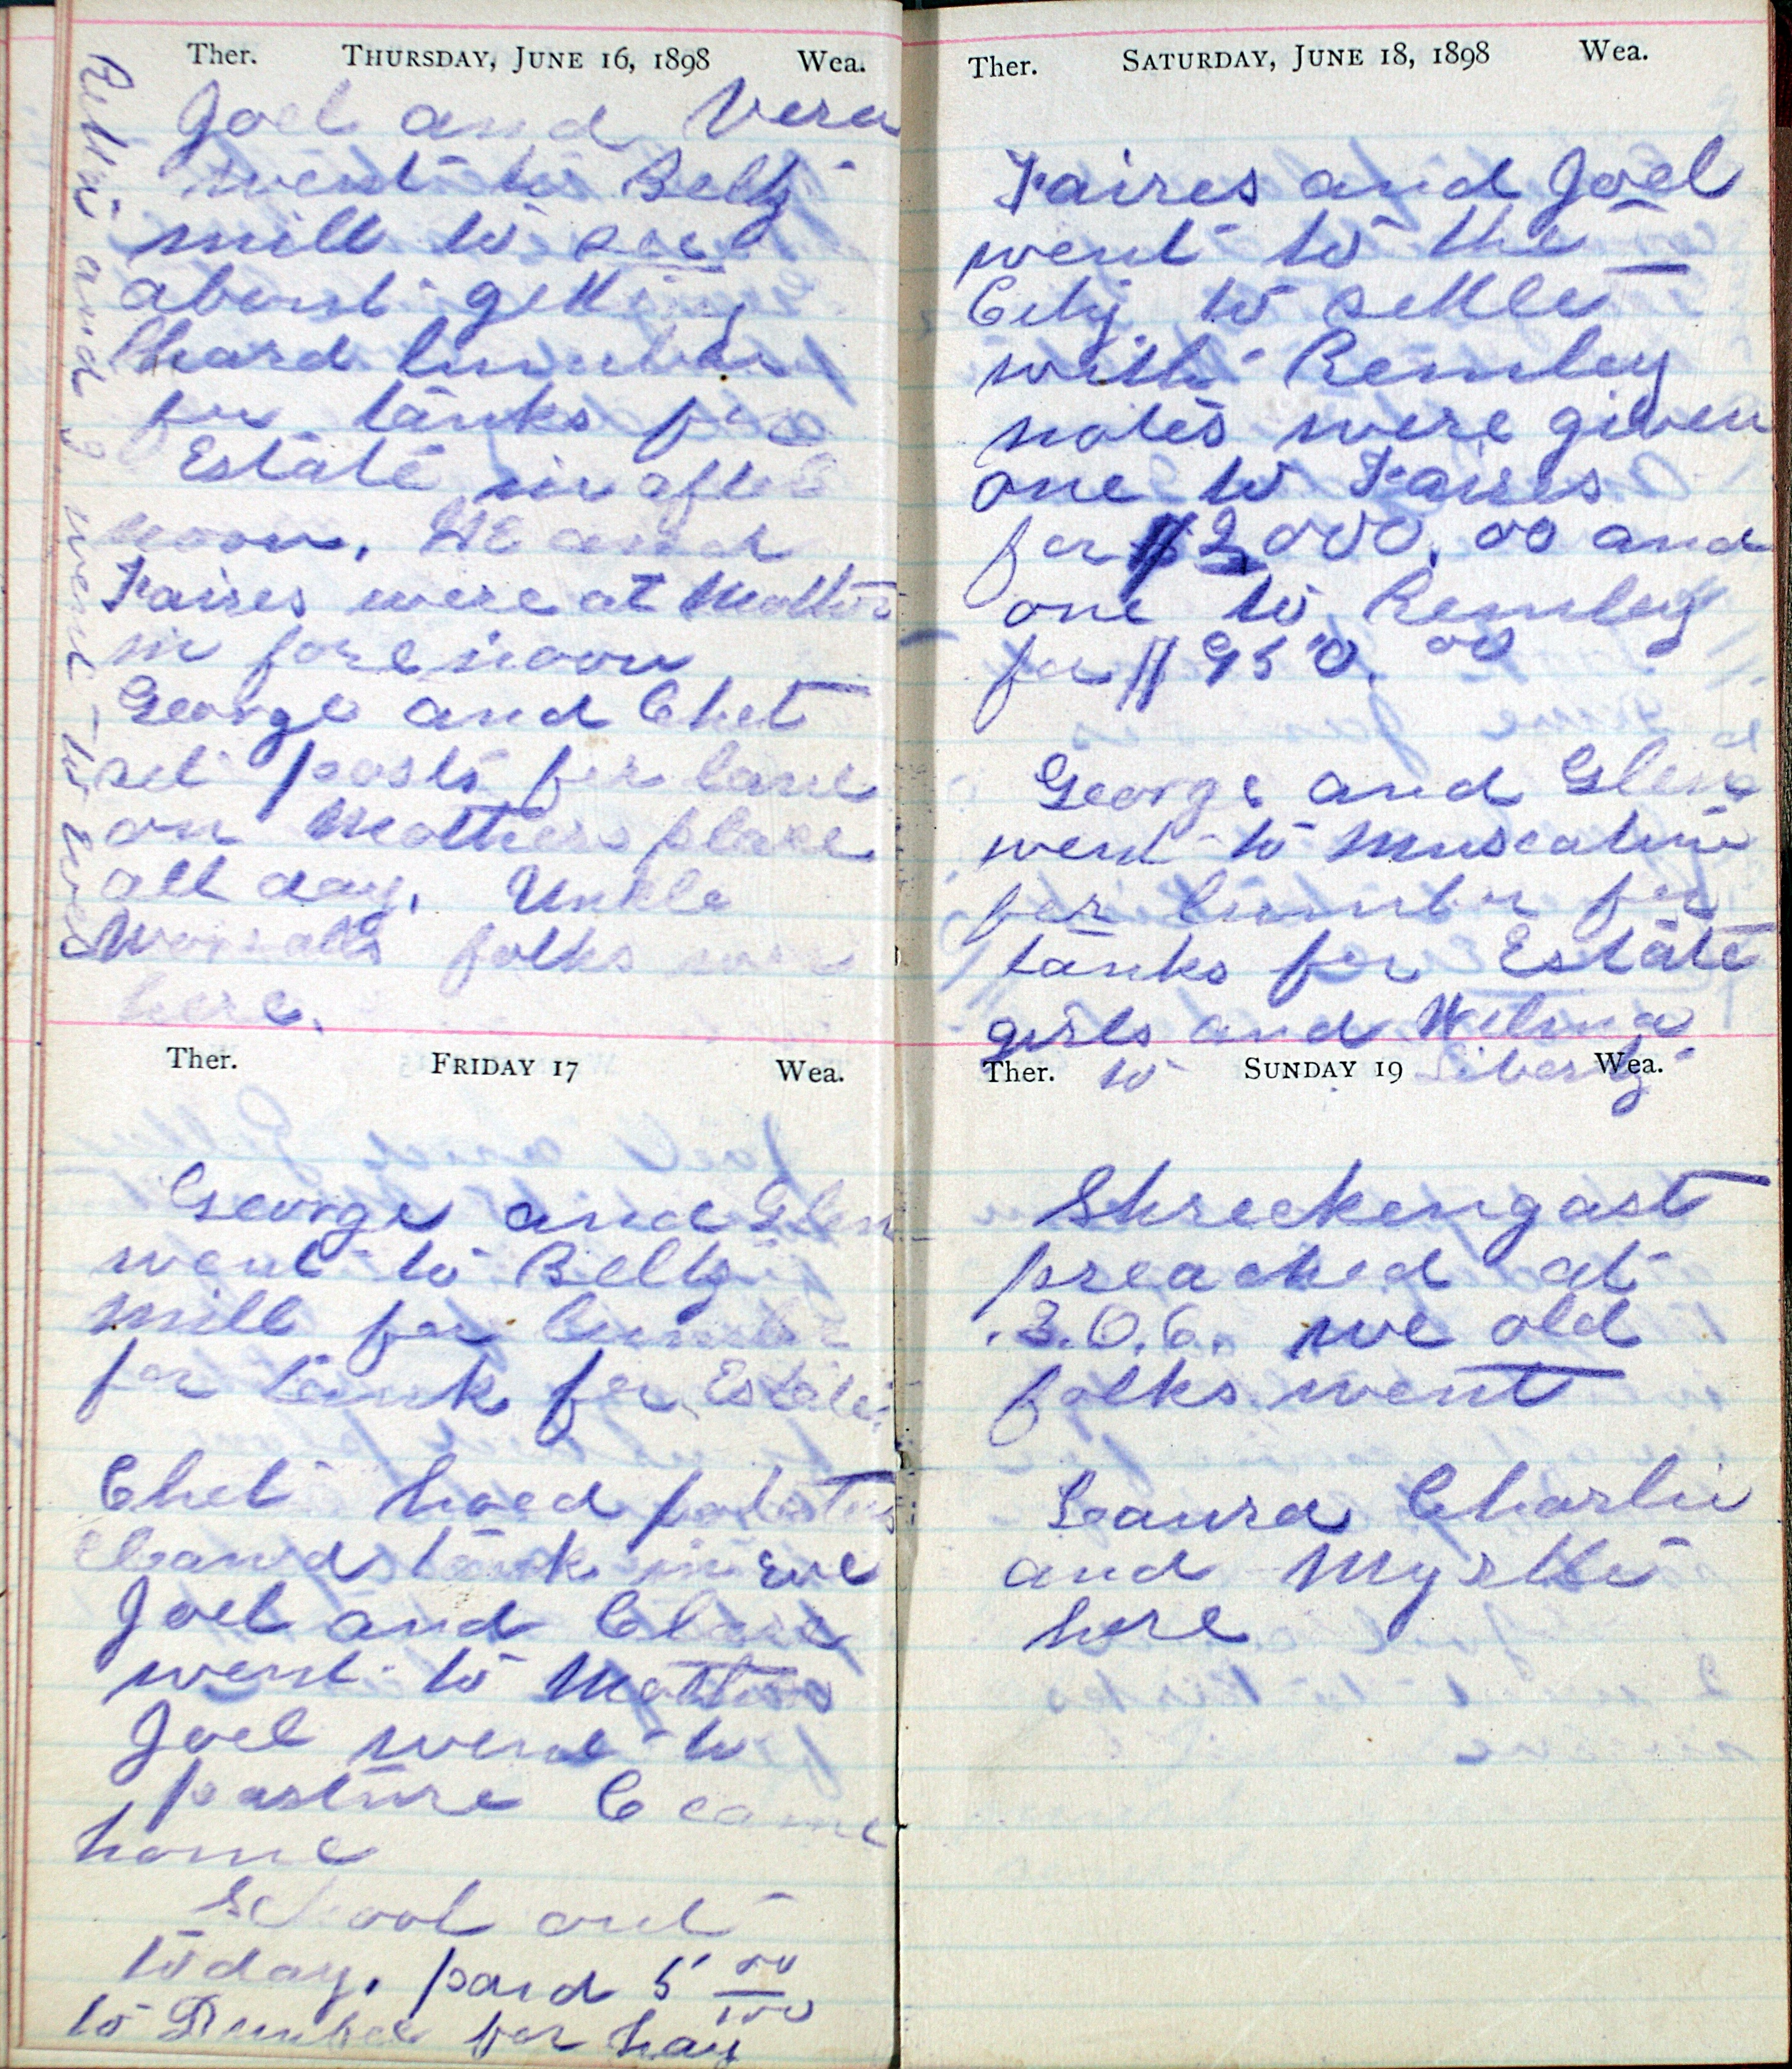 Ther. THURSDAY, JUNE 16, 1898 Wea.
Joel and Vera
went to Beltz
mill to see
about getting
hard lumber
for tanks for
Estate in after
noon. He and
Faires were at Mothers
in forenoon
George and Chet
set posts for lane
on Mothers place
all day. Unkle
Worralls folks were
here.
and g went to
Ther. FRIDAY 17 Wea.
George and Glen
went to Beltz
mill for lumber
for tank for Estate.
Chet hoed potatoes
cleand tank in eve
Joel and Clare
went to Mothers
Joel went to
pasture C came
home
School out
today. paid 5 00/100
to for hay
Ther. SATURDAY, JUNE 18, 1898 Wea.
Faires and Joel
went to the
City to settle
with Remley
notes were given
one to Faires
for $2000.00 and
one to Remley
for $950.00
George and Glen
went to Muscatine
for lumber for
tanks for Estate
girls and Wilma
to Liberty
Ther. SUNDAY 19 Wea.
Shreckengast
preached at
we old
folks went
Laura Charlie
and Myrtle
here